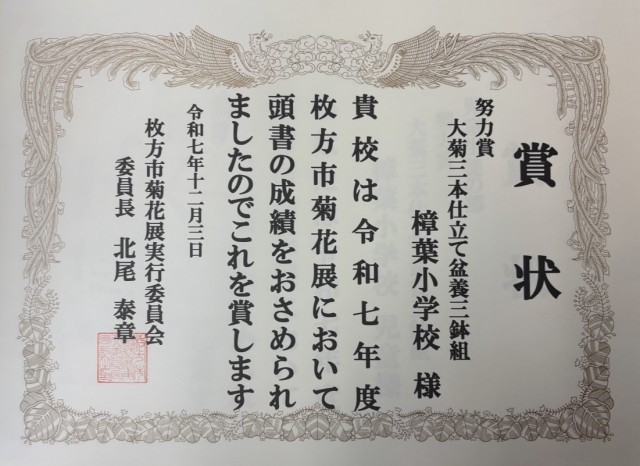 賞状
努力賞
大菊三本仕立て盆養三鉢組
樟葉小学校 様
貴校は令和七年度
枚方市菊花展において
頭書の成績をおさめられ
ましたのでこれを賞します
令和七年十二月三日
枚方市菊花展実行委員会
委員長 北尾 泰章